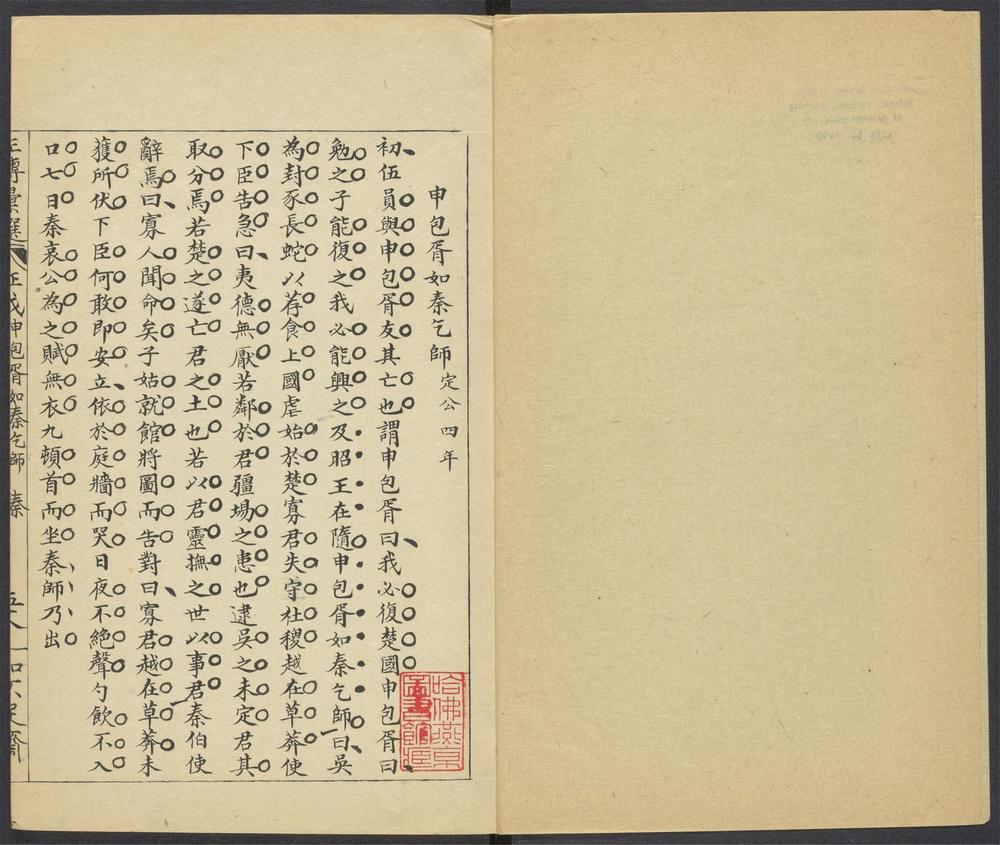 申包胥如秦乞師 定公四年
初伍員與申包胥友其亡也謂申包胥曰我必復楚國申包胥曰
勉之子能復之我必能興之及昭王在隨申包胥如秦乞師曰吳
為封豕長蛇以荐食上國虐始於楚寡君失守社稷越在草莽使
下臣告急曰夷德無厭若鄰於君疆埸之患也逮吳之未定君其
取分焉若楚之遂亡君之土也若以君靈撫之世以事君秦伯使
辭焉曰寡人聞命矣子姑就館將圖而告對曰寡君越在草莽未
獲所伏下臣何敢即安立依於庭牆而哭日夜不絕聲勺飲不入
口七日秦哀公為之賦無衣九頓首而坐秦師乃出
左傳彙選 申包胥如秦乞師 秦
哈佛燕京圖書館